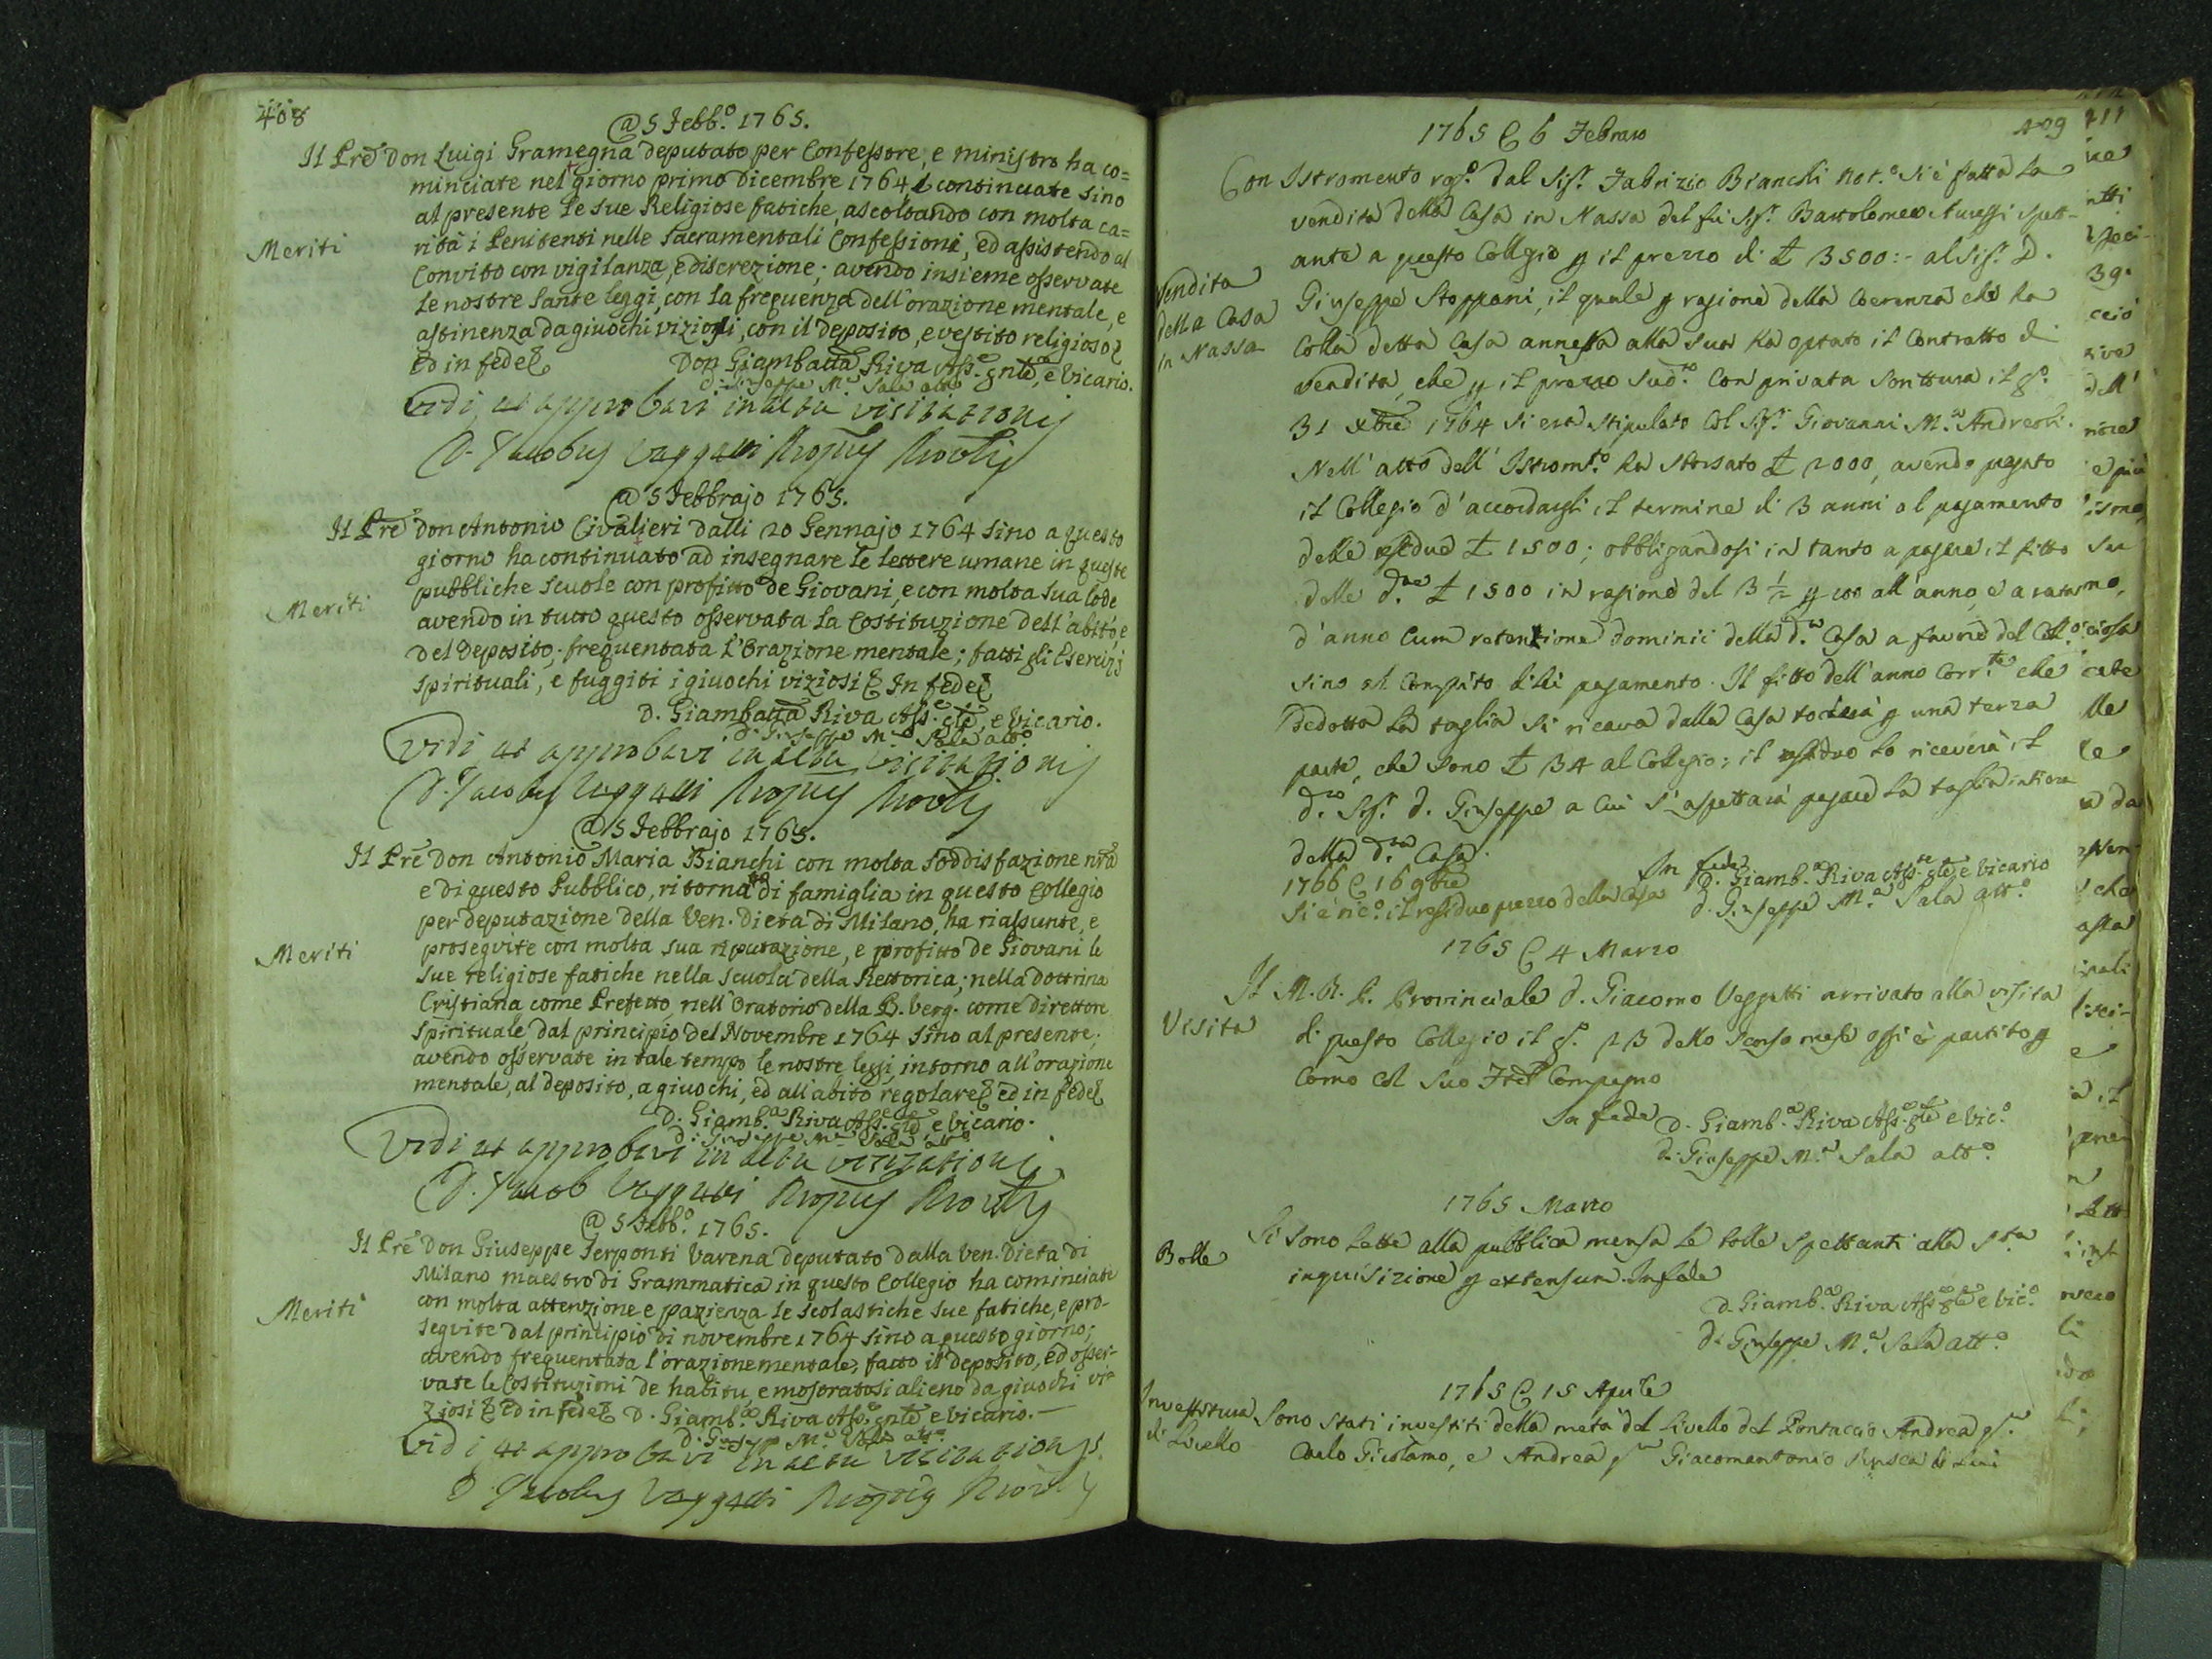 408
@ 5 Febb.º 1765.
Il Prē Don Luigi Gramegna deputato per Confessore, e ministro ha co=
minciate nel giorno primo Dicembre 1764 e continuate sino
al presente le sue Religiose fatiche, ascoltando con molta ca=
rità i Penitenti nelle Sacramentali Confessioni, ed assistendo al
Meriti
Convito con vigilanza, e discrezione; avendo insieme osservate
le nostre Sante leggi, con la frequenza dell'orazione mentale, e
astinenza da giuochi viziosi, con il deposito, e vestito religioso &
Ed in fede &
Don Giambatta Riva Ass.e gnte, e Vicario.
D. Giuseppe M.a Sala att.º
Vidi, et approbavi in actu visitationis
D. Jacobus Vaggetti Prępus Provlis
@ 5 Febbrajo 1765.
Il Prē don Antonio Civalieri dalli 20 Gennajo 1764 sino a questo
giorno ha continuato ad insegnare le lettere umane in queste
pubbliche scuole con profitto de Giovani, e con molta sua lode
Meriti
avendo in tutto questo osservata la Costituzione dell'abito, e
del Deposito; frequentata l'Orazione mentale; fatti gli Esercizj
spirituali, e fuggiti i giuochi viziosi & In fede &
D. Giambatta Riva Ass.e gle, e Vicario.
D. Giuseppe M.a Sala att.º
Vidi, et approbavi in actu visitationis
D. Jacobus Vaggetti Prępus Provlis
@ 5 Febbrajo 1765.
Il Prē Don Antonio Maria Bianchi con molta soddisfazione nrā
e di questo Pubblico, ritornato di famiglia in questo Collegio
per deputazione della Ven. Dieta di Milano, ha riassunte, e
Meriti
proseguite con molta sua riputazione, e profitto de Giovani le
sue religiose fatiche nella scuola della Rettorica; nella dottrina
Cristiana come Prefetto, nell'Oratorio della B. Verg. come Direttore
spirituale, dal principio del Novembre 1764 sino al presente;
avendo osservate in tale tempo le nostre leggi, intorno all'orazione
mentale, al deposito, a giuochi, ed all'abito regolare & ed in fede &
D. Giamb.a Riva Ass.e gle e Vicario.
D. Giuseppe M.a Sala att.º
Vidi et approbavi in actu visitationis
D. Jacob Vaggetti Prępus Provlis
@ 5 Febb.º 1765.
Il Prē Don Giuseppe Serponti Varena deputato dalla Ven. Dieta di
Milano maestro di Grammatica in questo Collegio ha cominciate
Meriti
con molta attenzione e pazienza le scolastiche sue fatiche, e pro-
seguite dal principio di novembre 1764 sino a questo giorno;
avendo frequentata l'orazione mentale, fatto il deposito, ed osser-
vate le Costituzioni de habitu, e mostratosi alieno da giuochi vi-
ziosi & Ed in fede & D. Giamb.a Riva Ass.e gnte e Vicario.
D. Giusepp M.a Sala att.º
Vidi et approbavi in actu visitationis
D. Jacobus Vaggetti Prępus Provlis
409
1765 @ 6 Febraro
Con Istromento rog.º dal Sig.r Fabrizio Bianchi Not.º si è fatta la
vendita della Casa in Nassa del fu Sig.r Bartolomeo Aureggi spett-
ante a questo Collegio p il prezzo di £ 3500:- al Sig.r D.
Vendita
della Casa
in Nassa
Giuseppe Stoppani, il quale p ragione della Coerenza che ha
Colla detta Casa annessa alla sua ha optato il Contratto di
vendita, che p il prezzo sud.to Con privata Scrittura il g.º
31 Xbre 1764 si era stipulato Col Sig.r Giovanni M.a Andreoli.
Nell'atto dell'Istrom.to ha sborsato £ 2000, avendo pregato
il Collegio d'accordargli il termine di 3 anni al pagamento
delle residue £ 1500; obbligandosi in tanto a pagare il fitto
delle d.te £ 1500 in ragione del 3 ½ p 100 all'anno, e a rata
d'anno Cum retentione dominii della d.a Casa a favore del Coll.º
sino al Compito di lui pagamento. Il fitto dell'anno Corr.te che
dedotta la taglia si ricava dalla Casa toccarà p una terza
parte, che sono £ 34 al Collegio; il residuo lo riceverà il
d.to Sig.r D. Giuseppe a cui s'aspettarà pagare la taglia intiera
della d.ta Casa.
In fede
D. Giamb.a Riva Ass.te gle e Vicario
D. Giuseppe M.a Sala att.º
1766 @ 16 9bre
Si è ric.º il residuo prezzo della Casa
1765 @ 4 Marzo
Il M. R. P. Provinciale D. Giacomo Vaggetti arrivato alla visita
Visita
di questo Collegio il g.º 23 dello scorso mese oggi è partito p
Como col suo Frēl Compagno
In fede D. Giamb.a Riva Ass.e gle e Vic.º
D. Giuseppe M.a Sala att.º
1765 Marzo
Bolle
Si sono lette alla pubblica mensa le bolle spettanti alla S.ta
inquisizione p extensum. In fede
D. Giamb.a Riva Ass.e gle e Vic.º
D. Giuseppe M.a Sala att.º
1765 @ 15 Aprile
Investitura
di Livello
Sono stati investiti della metà del Livello del Pontaccio Andrea q.m
Carlo Girolamo, e Andrea q.m Giacomantonio